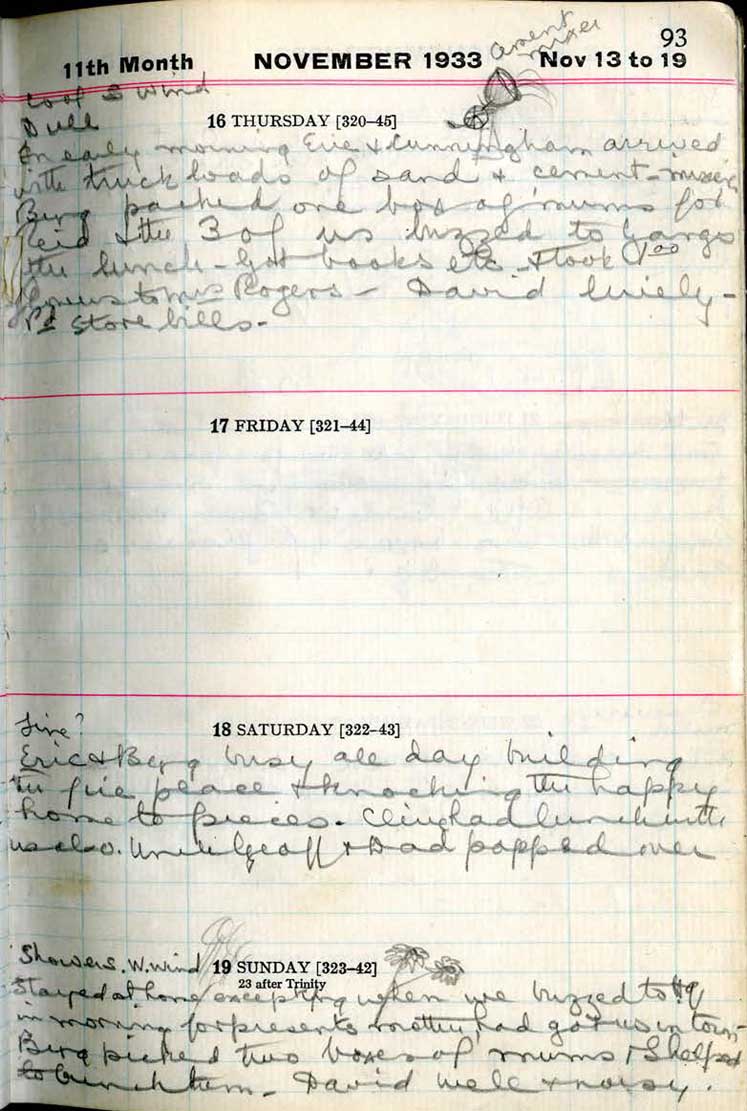 93
11th Month NOVEMBER 1933 Nov 13 to 19
cement
mixer
Cool S Wind
Dull
16 THURSDAY [320–45]
In early morning Eric & Cunningham arrived
with truck loads of sand & cement-mixer
Berg packed one box of 'mums for
Reid & the 3 of us buzzed to
the lunch - Got books etc & took
to Mrs Rogers - David lively -
Pd store bills -
17 FRIDAY [321–44]
Fine?
18 SATURDAY [322–43]
Eric & Berg busy all day building
the fire place & knocking the happy
home to pieces. had lunch with
us also. Uncle Geoff & Dad popped over
Showers. W. wind
19 SUNDAY [323–42]
23 after Trinity
Stayed at home excepting when we buzzed to Hq
in morning for presents mother had got us in town -
Berg picked two boxes of mums & I helped
to bunch them - David well & noisy.